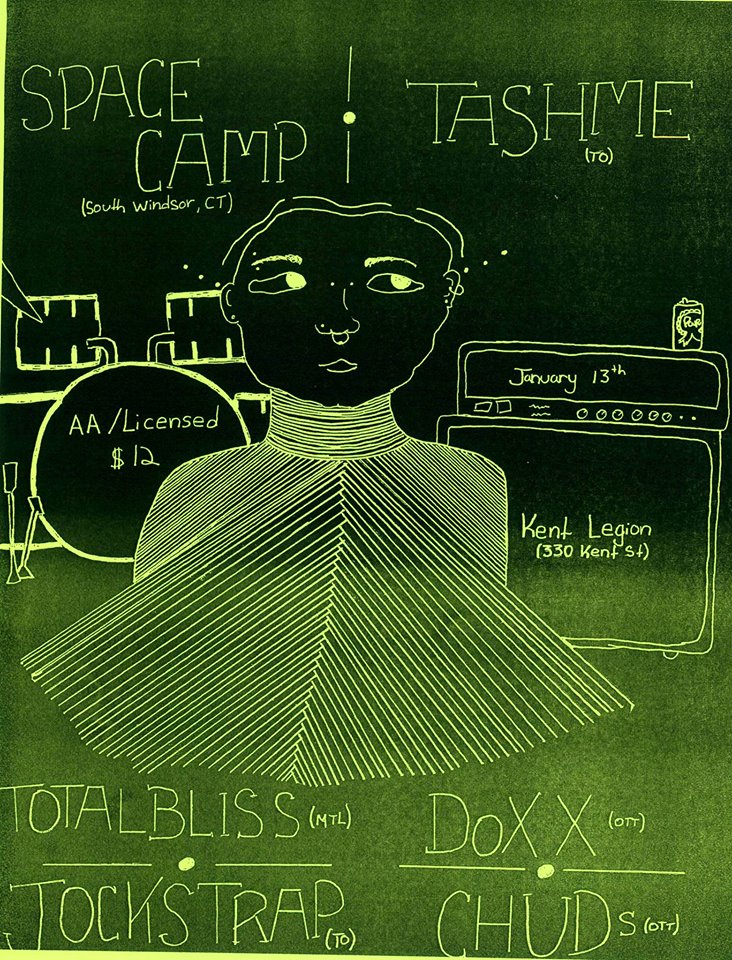 SPACE CAMP
(South Windsor, CT)
TASHME
(TO)
AA/Licensed
$12
January 13th
Kent Legion
(330 Kent St)
TOTALBLISS (MTL)
DOXX (OTT)
JOCKSTRAP (TO)
CHUDS (OTT)